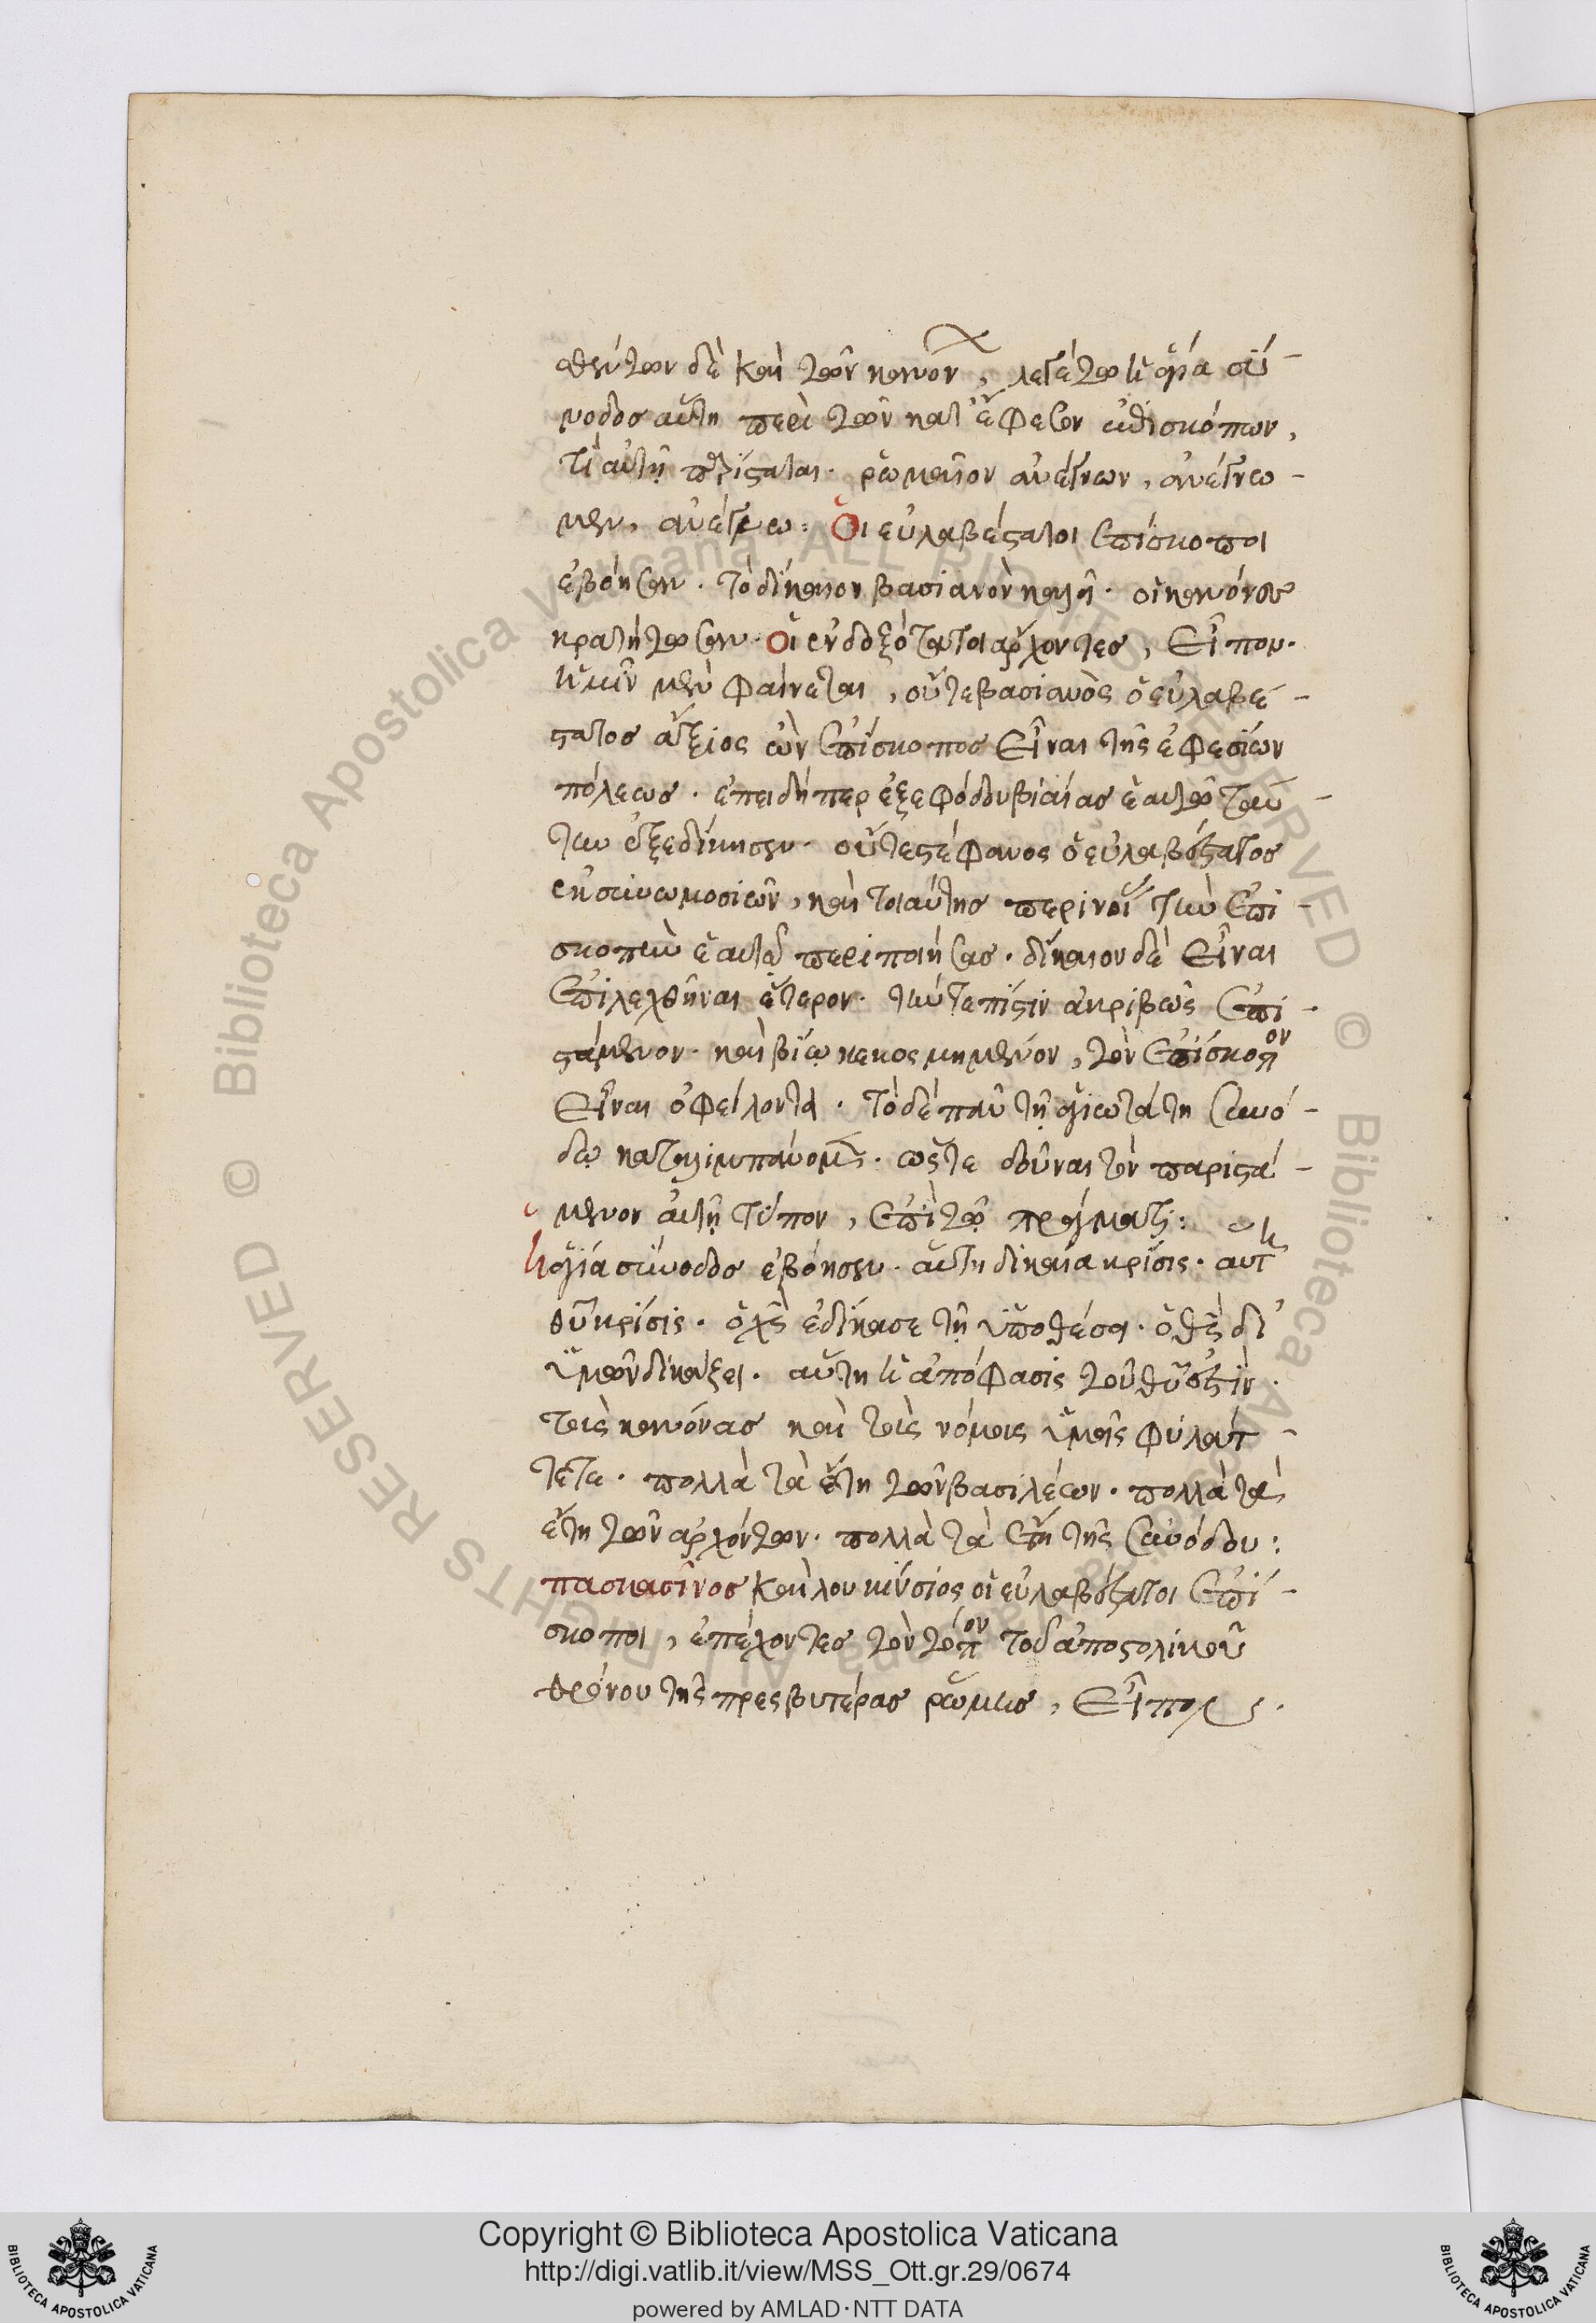 θέντων δὲ καὶ τῶν κανόνων, λεγέτω ἡ ἁγία σύ-
νοδος αὕτη περὶ τῶν κατ' ἔφεσον ἐπισκόπων,
τί αὐτῇ παρίσταται. ῥωμαῖον ἀνέγνων, ἀνέγνω-
μεν, ἀνέγνω: Οἱ εὐλαβέστατοι ἐπίσκοποι
ἐβόησαν. τὸ δίκαιον βασιανὸν καλεῖ. οἱ κανόνες
κρατήτωσαν. Οἱ ἐνδοξότατοι ἄρχοντες, εἶπον.
ἡμῖν μὲν φαίνεται, οὔτε βασιανὸς ὁ εὐλαβέ-
στατος ἄξιος ὢν ἐπίσκοπος εἶναι τῆς ἐφεσίων
πόλεως. ἐπειδήπερ ἐξ ἐφόδου βιαίας ἑαυτῷ ταύ-
την ἐξεδίκησεν. οὔτε στέφανος ὁ εὐλαβέστατος
ἐκ συνωμοσιῶν, καὶ τοιαύτης περινοίας τὴν ἐπι-
σκοπὴν ἑαυτῷ περιποιήσας. δίκαιον δὲ εἶναι
ἐπιλεχθῆναι ἕτερον. τήν τε πίστιν ἀκριβῶς ἐπι-
στάμενον. καὶ βίῳ κεκοσμημένον, τὸν ἐπίσκοπον
εἶναι ὀφείλοντα. τὸ δὲ πᾶν τῇ ἁγιωτάτῃ συνό-
δῳ καταλιμπάνομεν. ὥστε δοῦναι τὸν παριστά-
μενον αὐτῇ τύπον, ἐπὶ τῷ πράγματι:
ἡ ἁγία σύνοδος ἐβόησεν. αὕτη δικαία κρίσις. αὕτη
θεοῦ κρίσις. ὁ χριστὸς ἐδίκασε τῇ ὑποθέσει. ὁ θεὸς δι'
ὑμῶν δικάζει. αὕτη ἡ ἀπόφασις τοῦ θεοῦ ἐστίν.
τοὺς κανόνας καὶ τοὺς νόμους ὑμεῖς φυλάτ-
τετε. πολλὰ τὰ ἔτη τῶν βασιλέων. πολλὰ τὰ
ἔτη τῶν ἀρχόντων. πολλὰ τὰ ἔτη τῆς συνόδου:
πασκασῖνος καὶ λουκίνσιος οἱ εὐλαβέστατοι ἐπί-
σκοποι, ἐπέχοντες τὸν τόπον τοῦ ἀποστολικοῦ
θρόνου τῆς πρεσβυτέρας ῥώμης, εἶπον.
Copyright © Biblioteca Apostolica Vaticana
http://digi.vatlib.it/view/MSS_Ott.gr.29/0674
powered by AMLAD·NTT DATA